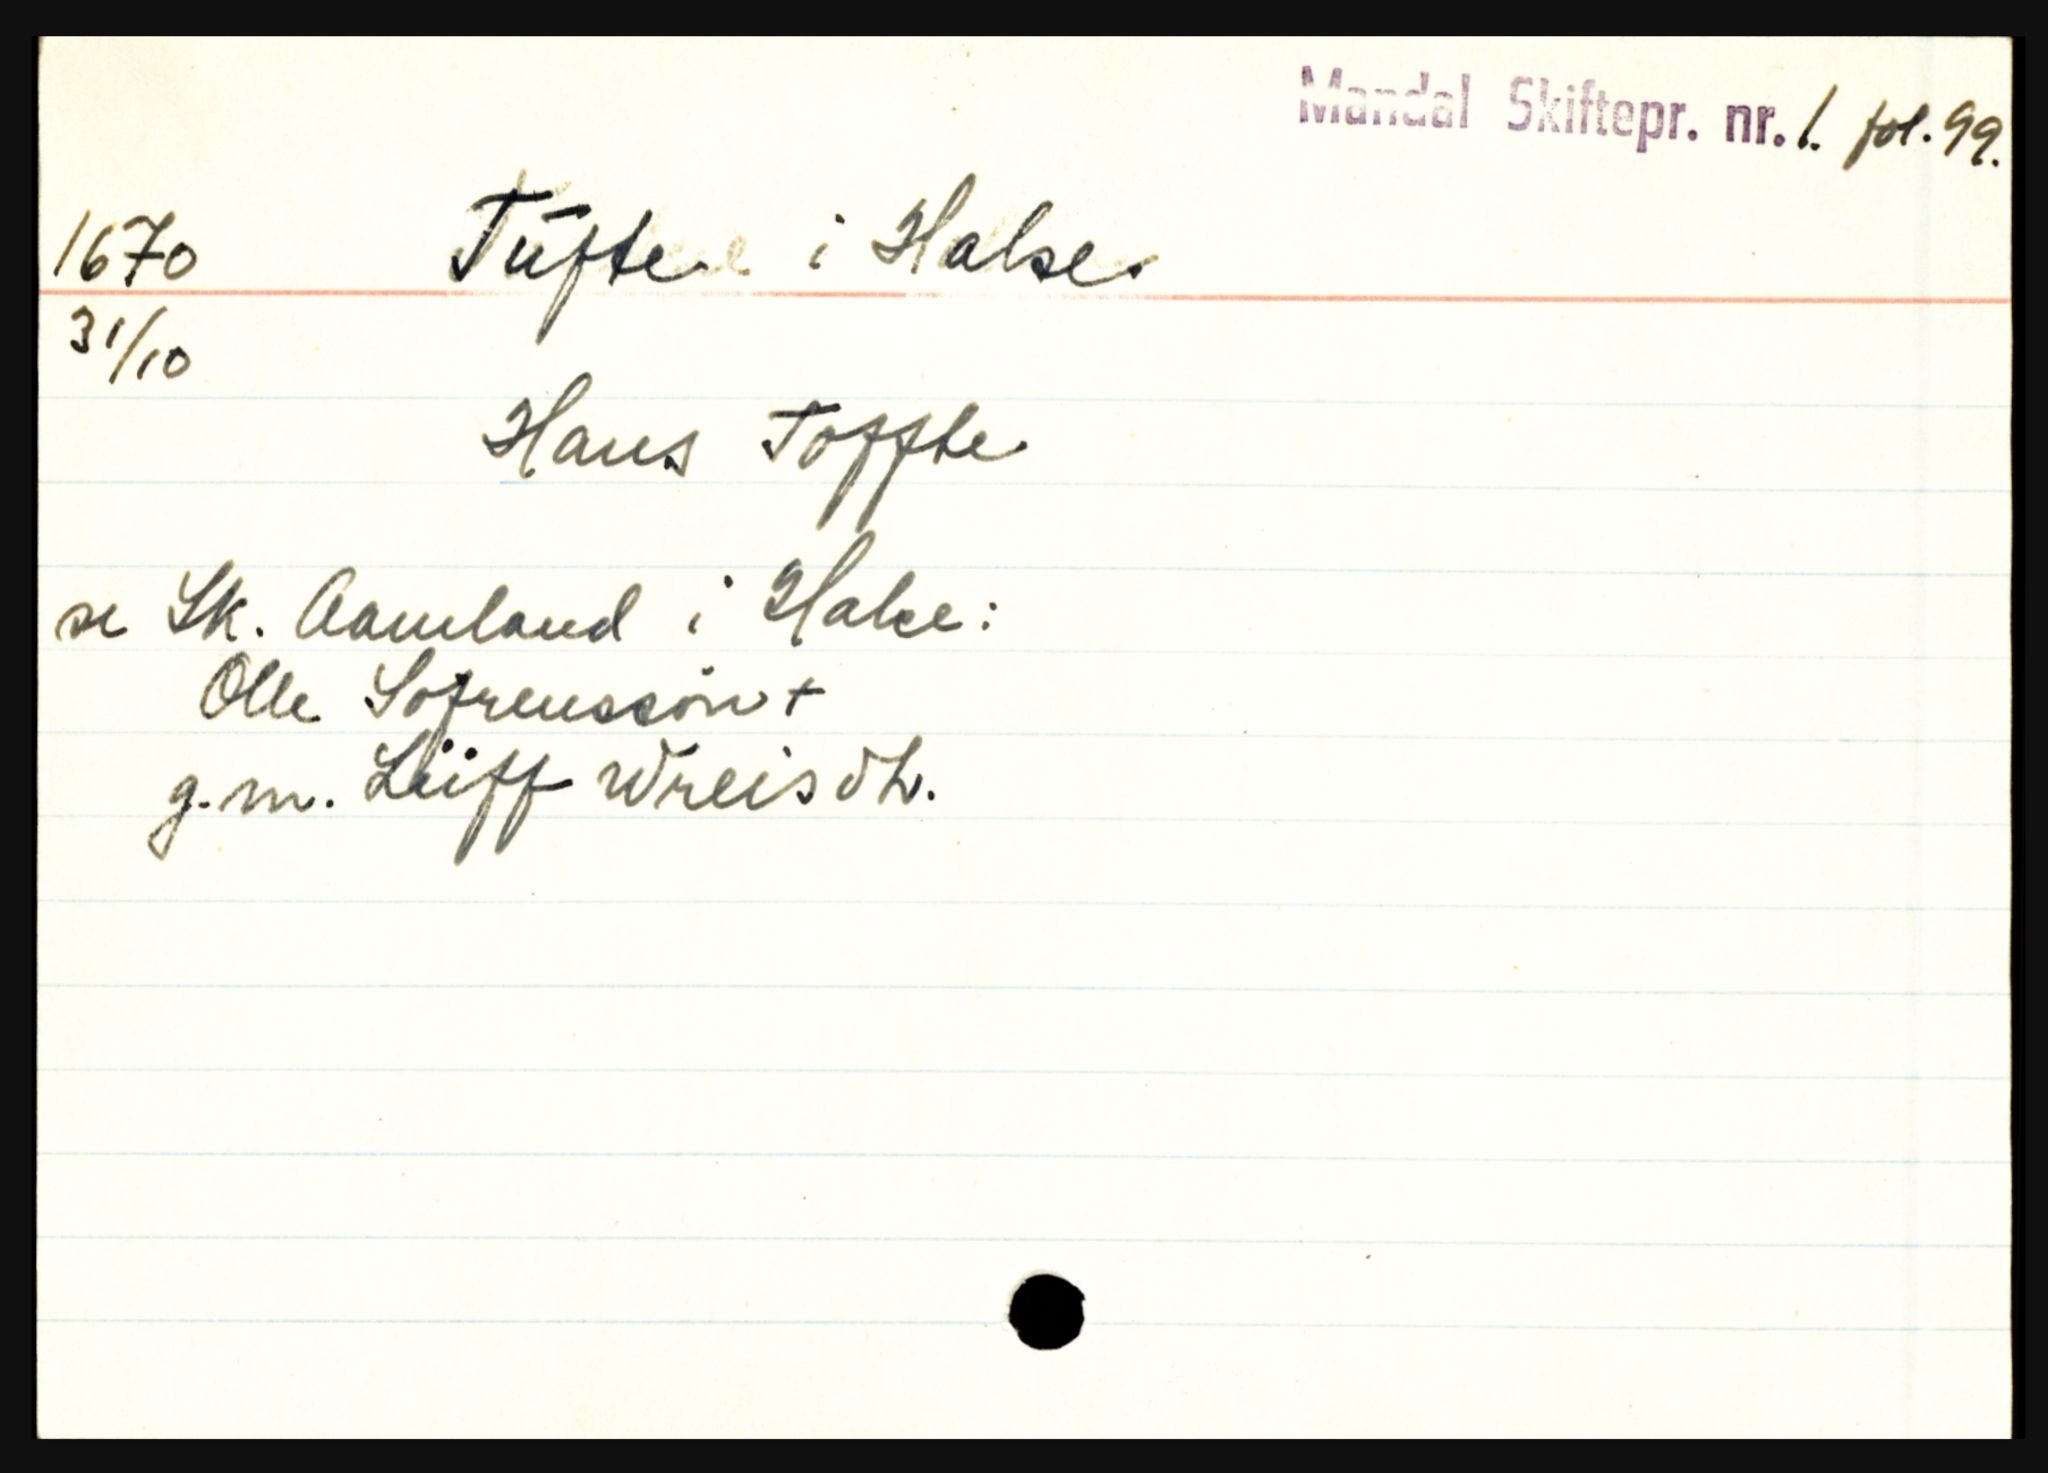 Mandal Skiftepr. nr. 1. fol. 99.
1670 Tufte i Halse.
31/10
Hans Toffte
se Sk. Aamland i Halse:
Olle Sofrenssøn +
g.m. Lüiff Wreisdt.